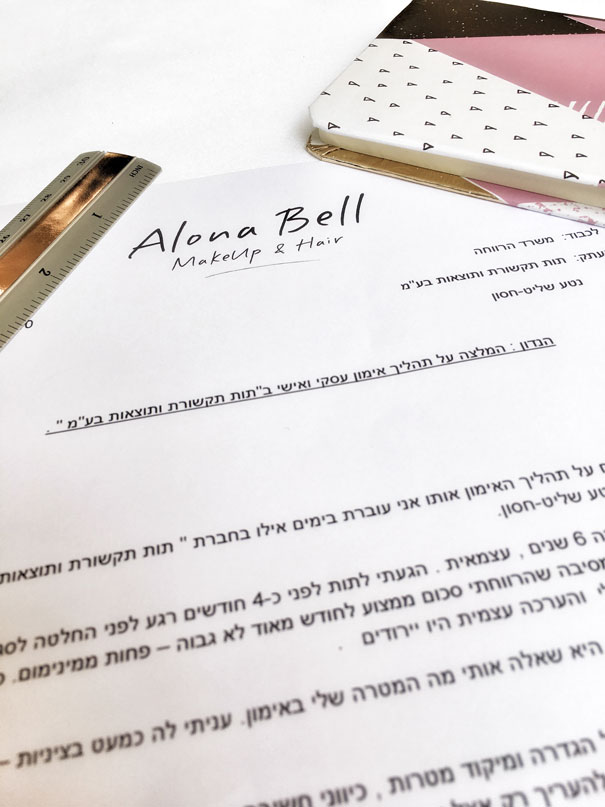 Alona Bell
MakeUp & Hair
לכבוד: משרד הרווחה
תות תקשורת ותוצאות בע"מ
נטע שליט-חסון
הנדון : המלצה על תהליך אימון עסקי ואישי ב"תות תקשורת ותוצאות בע"מ " .
על תהליך האימון אותו אני עוברת בימים אילו בחברת " תות תקשורת ותוצאות
שליט-חסון.
6 שנים , עצמאית . הגעתי לתות לפני כ-4 חודשים רגע לפני החלטה
שהרווחתי סכום ממוצע לחודש מאוד לא גבוה – פחות ממינימום.
והערכה עצמית היו יירודים .
היא שאלה אותי מה המטרה שלי באימון. עניתי לה כמעט בציניות –
הגדרה ומיקוד מטרות , כיווני
להעריך רק
INCH
1
2
0
27
28
29
30